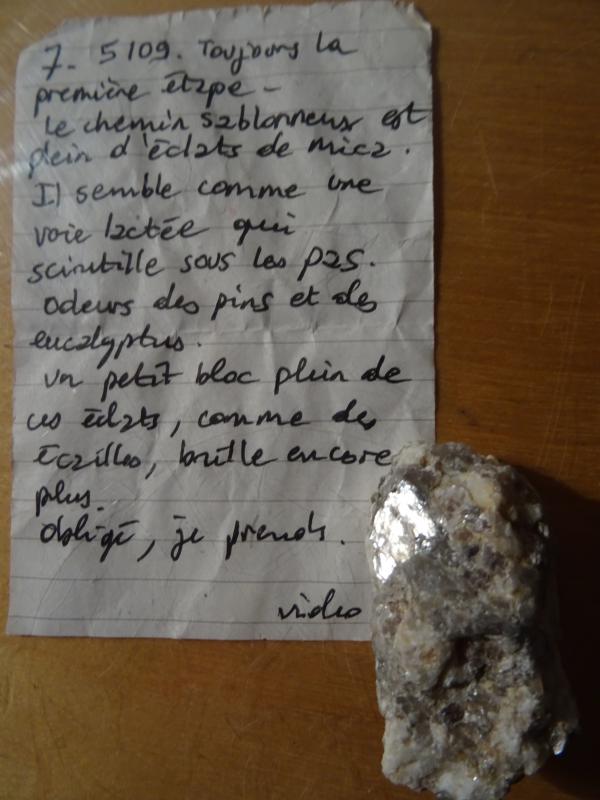 7. 5109. Toujours la
première étape -
Le chemin sablonneux est
plein d'éclats de mica.
Il semble comme une
voie lactée qui
scintille sous les pas.
Odeurs des pins et des
eucalyptus.
Un petit bloc plein de
ces éclats, comme des
écailles, brille encore
plus.
Obligé, je prends.
video